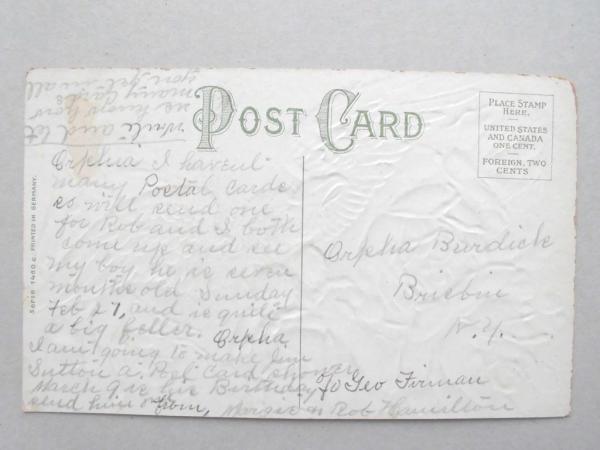 POST CARD
PLACE STAMP
HERE.
UNITED STATES
AND CANADA
ONE CENT.
FOREIGN, TWO
CENTS
SERIE 1450 C. PRINTED IN GERMANY.
Orpha I havent
many Postal Cards
so will send one
for Rob and I both
come up and see
my boy he is seven
months old Sunday
Feb 27, and is quite
a big feller. Orpha
I am going to make Jim
Sutton a Post Card shower
March 9 is his Birthday
send him one
From, Morsie & Rob Hamilton
write and let
us know how
many cards
you get in all
Orpha Burdick
Brisbin
N.Y.
To Geo Firman